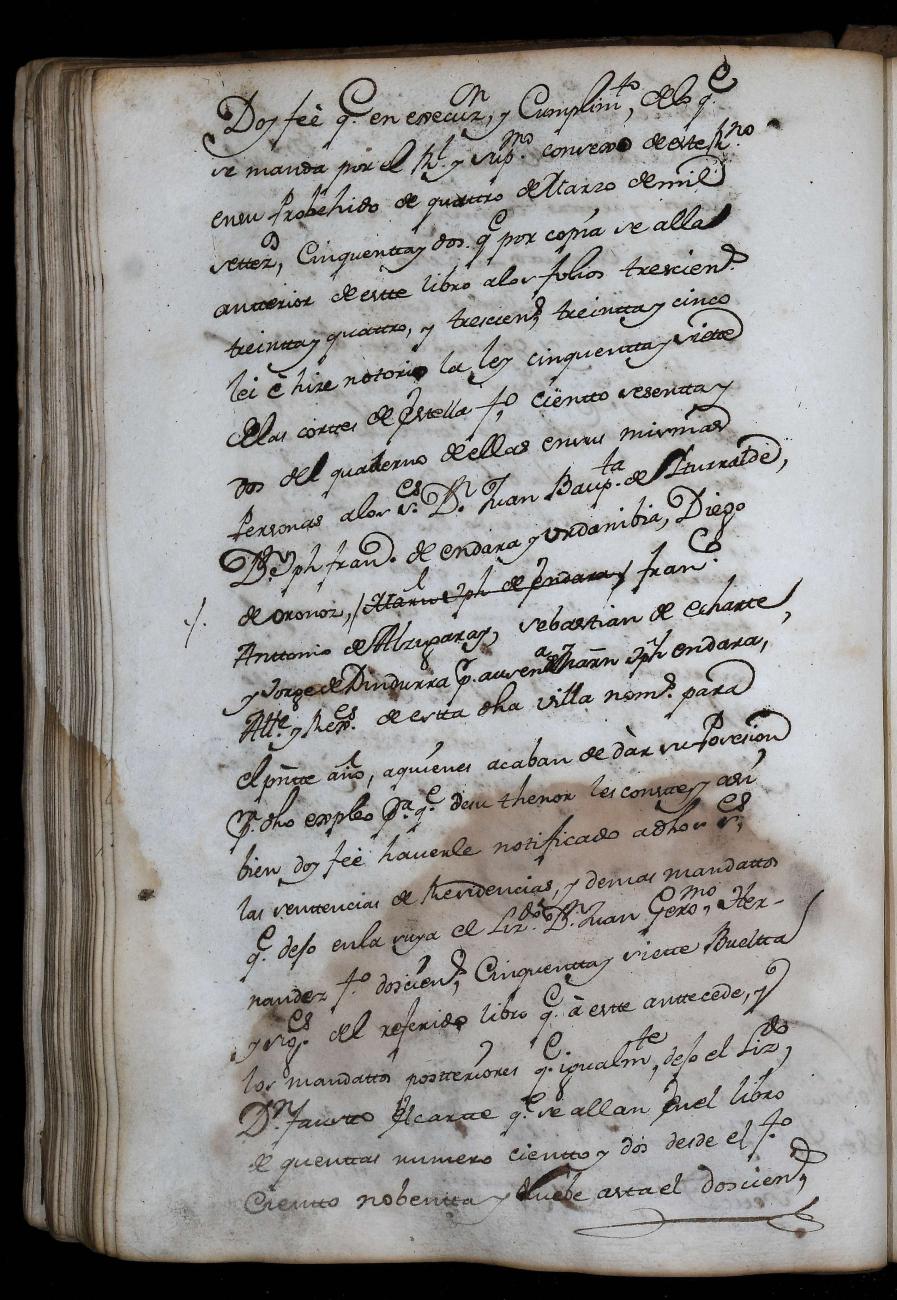 Doy feè q.e en execuz.n, y Cumplim.to, de lo q.e
se manda por el R.l y sup.mo consexo de este R.no
ensu Probehido de quattro de Marzo de mil
settez.s, Cinquentta y dos. q.e por copia se alla
antterior de estte libro alos folios trescien.s
treintta y quattro, y trescien.s treintta y cinco
lei è hize notorio la ley cinquentta y siette
de las corttes de Estella f.o cientto sesentta y
dos del quaderno de ellas en sus mismas
Personas alos s.es D.n Juan Baup.ta de Iturralde,
D.n Jph fran.co de endara y Vrdanibia, Diego
de oronoz, Martin Jph de endara, fran.co
Anttonio de Alzugaray, sebastian de echarte
y Jorge de Dindurra p.r ausen.a de Marn Jph endara,
Alt.e y Rex.es de estta dha villa nom.s para
el pntte año, aquienes acaban de dàr su Posesion
p.r dho expleo p.a q.e desu thenor les constte, y asi
bien doy feè haverle notificado a dhos s.es
las senttencias de Residencias, y demas mandattos
q.e dejo en la suya el Liz.do D.n Juan Gero.mo Her-
nandez f.o doscien.s, Cinquentta y siette Bueltta
y sig.es del referido libro q.e à estte anttecede, y
los mandattos postteriores q.e igualm.te, dejo el Liz.do,
D.n Fausto Elcartte q.e se allan en el libro
de quenttas numero cientto y dos desde el f.o
Cientto nobentta y Nuebe asta el doscien.s